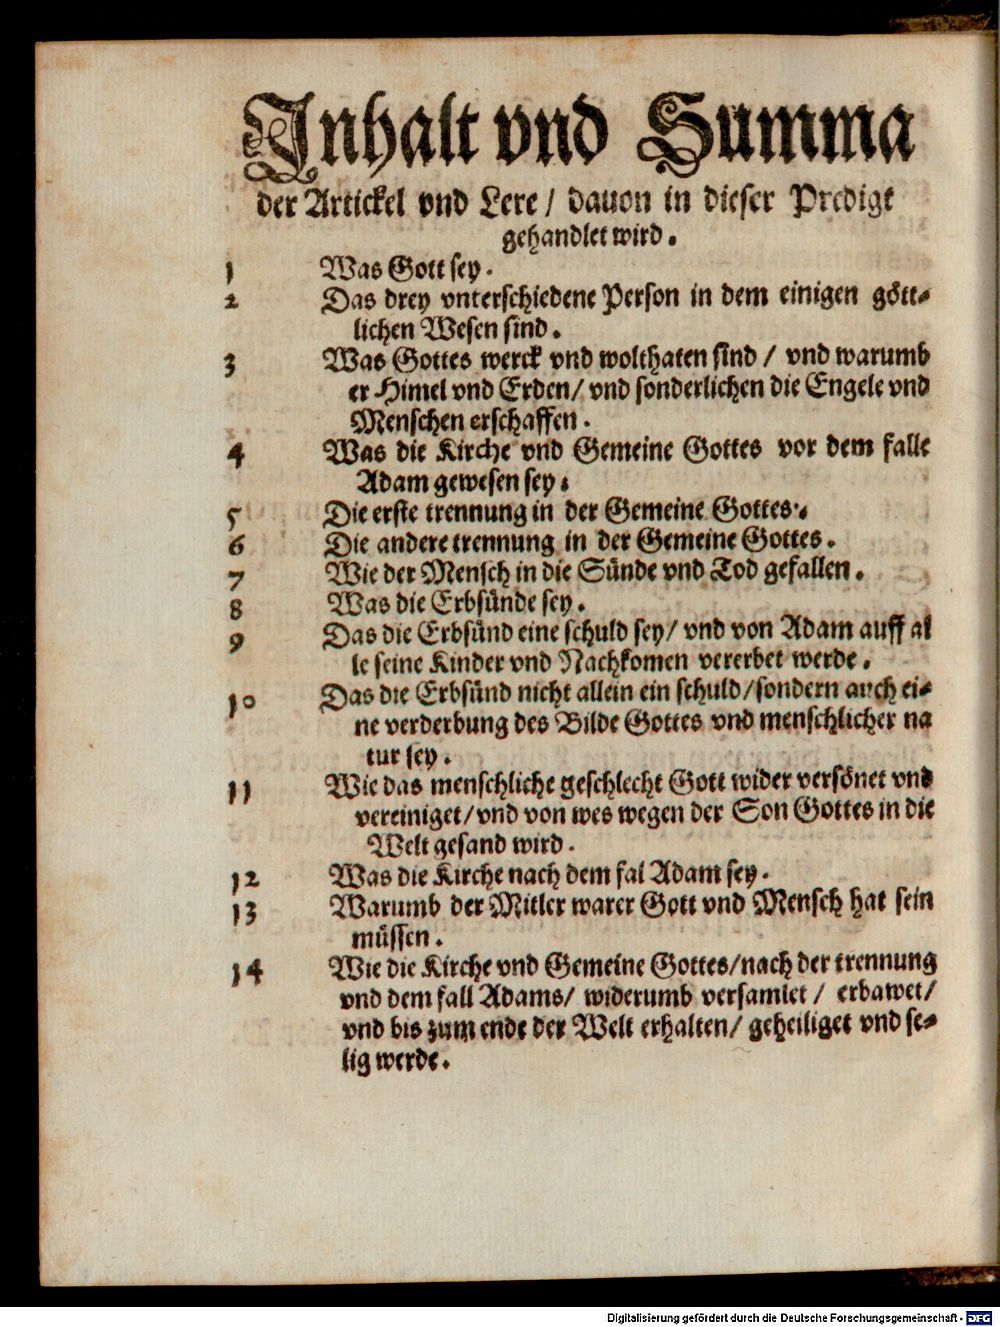 Inhalt vnd Summa
der Artickel vnd Lere / dauon in dieser Predigt
gehandlet wird.
1 Was Gott sey.
2 Das drey vnterschiedene Person in dem einigen gött-
lichen Wesen sind.
3 Was Gottes werck vnd wolthaten sind / vnd warumb
er Himel vnd Erden/ vnd sonderlichen die Engele vnd
Menschen erschaffen.
4 Was die Kirche vnd Gemeine Gottes vor dem falle
Adam gewesen sey.
5 Die erste trennung in der Gemeine Gottes.
6 Die andere trennung in der Gemeine Gottes.
7 Wie der Mensch in die Sünde vnd Tod gefallen.
8 Was die Erbsünde sey.
9 Das die Erbsünd eine schuld sey/ vnd von Adam auff al
le seine Kinder vnd Nachkomen vererbet werde.
10 Das die Erbsünd nicht allein ein schuld/sondern auch ei-
ne verderbung des Bilde Gottes vnd menschlicher na
tur sey.
11 Wie das menschliche geschlecht Gott wider versönet vnd
vereiniget/ vnd von wes wegen der Son Gottes in die
Welt gesand wird.
12 Was die Kirche nach dem fal Adam sey.
13 Warumb der Mitler warer Gott vnd Mensch hat sein
müssen.
14 Wie die Kirche vnd Gemeine Gottes/nach der trennung
vnd dem fall Adams/ widerumb versamlet / erbawet/
vnd bis zum ende der Welt erhalten/ geheiliget vnd se-
lig werde.
Digitalisierung gefördert durch die Deutsche Forschungsgemeinschaft - DFG